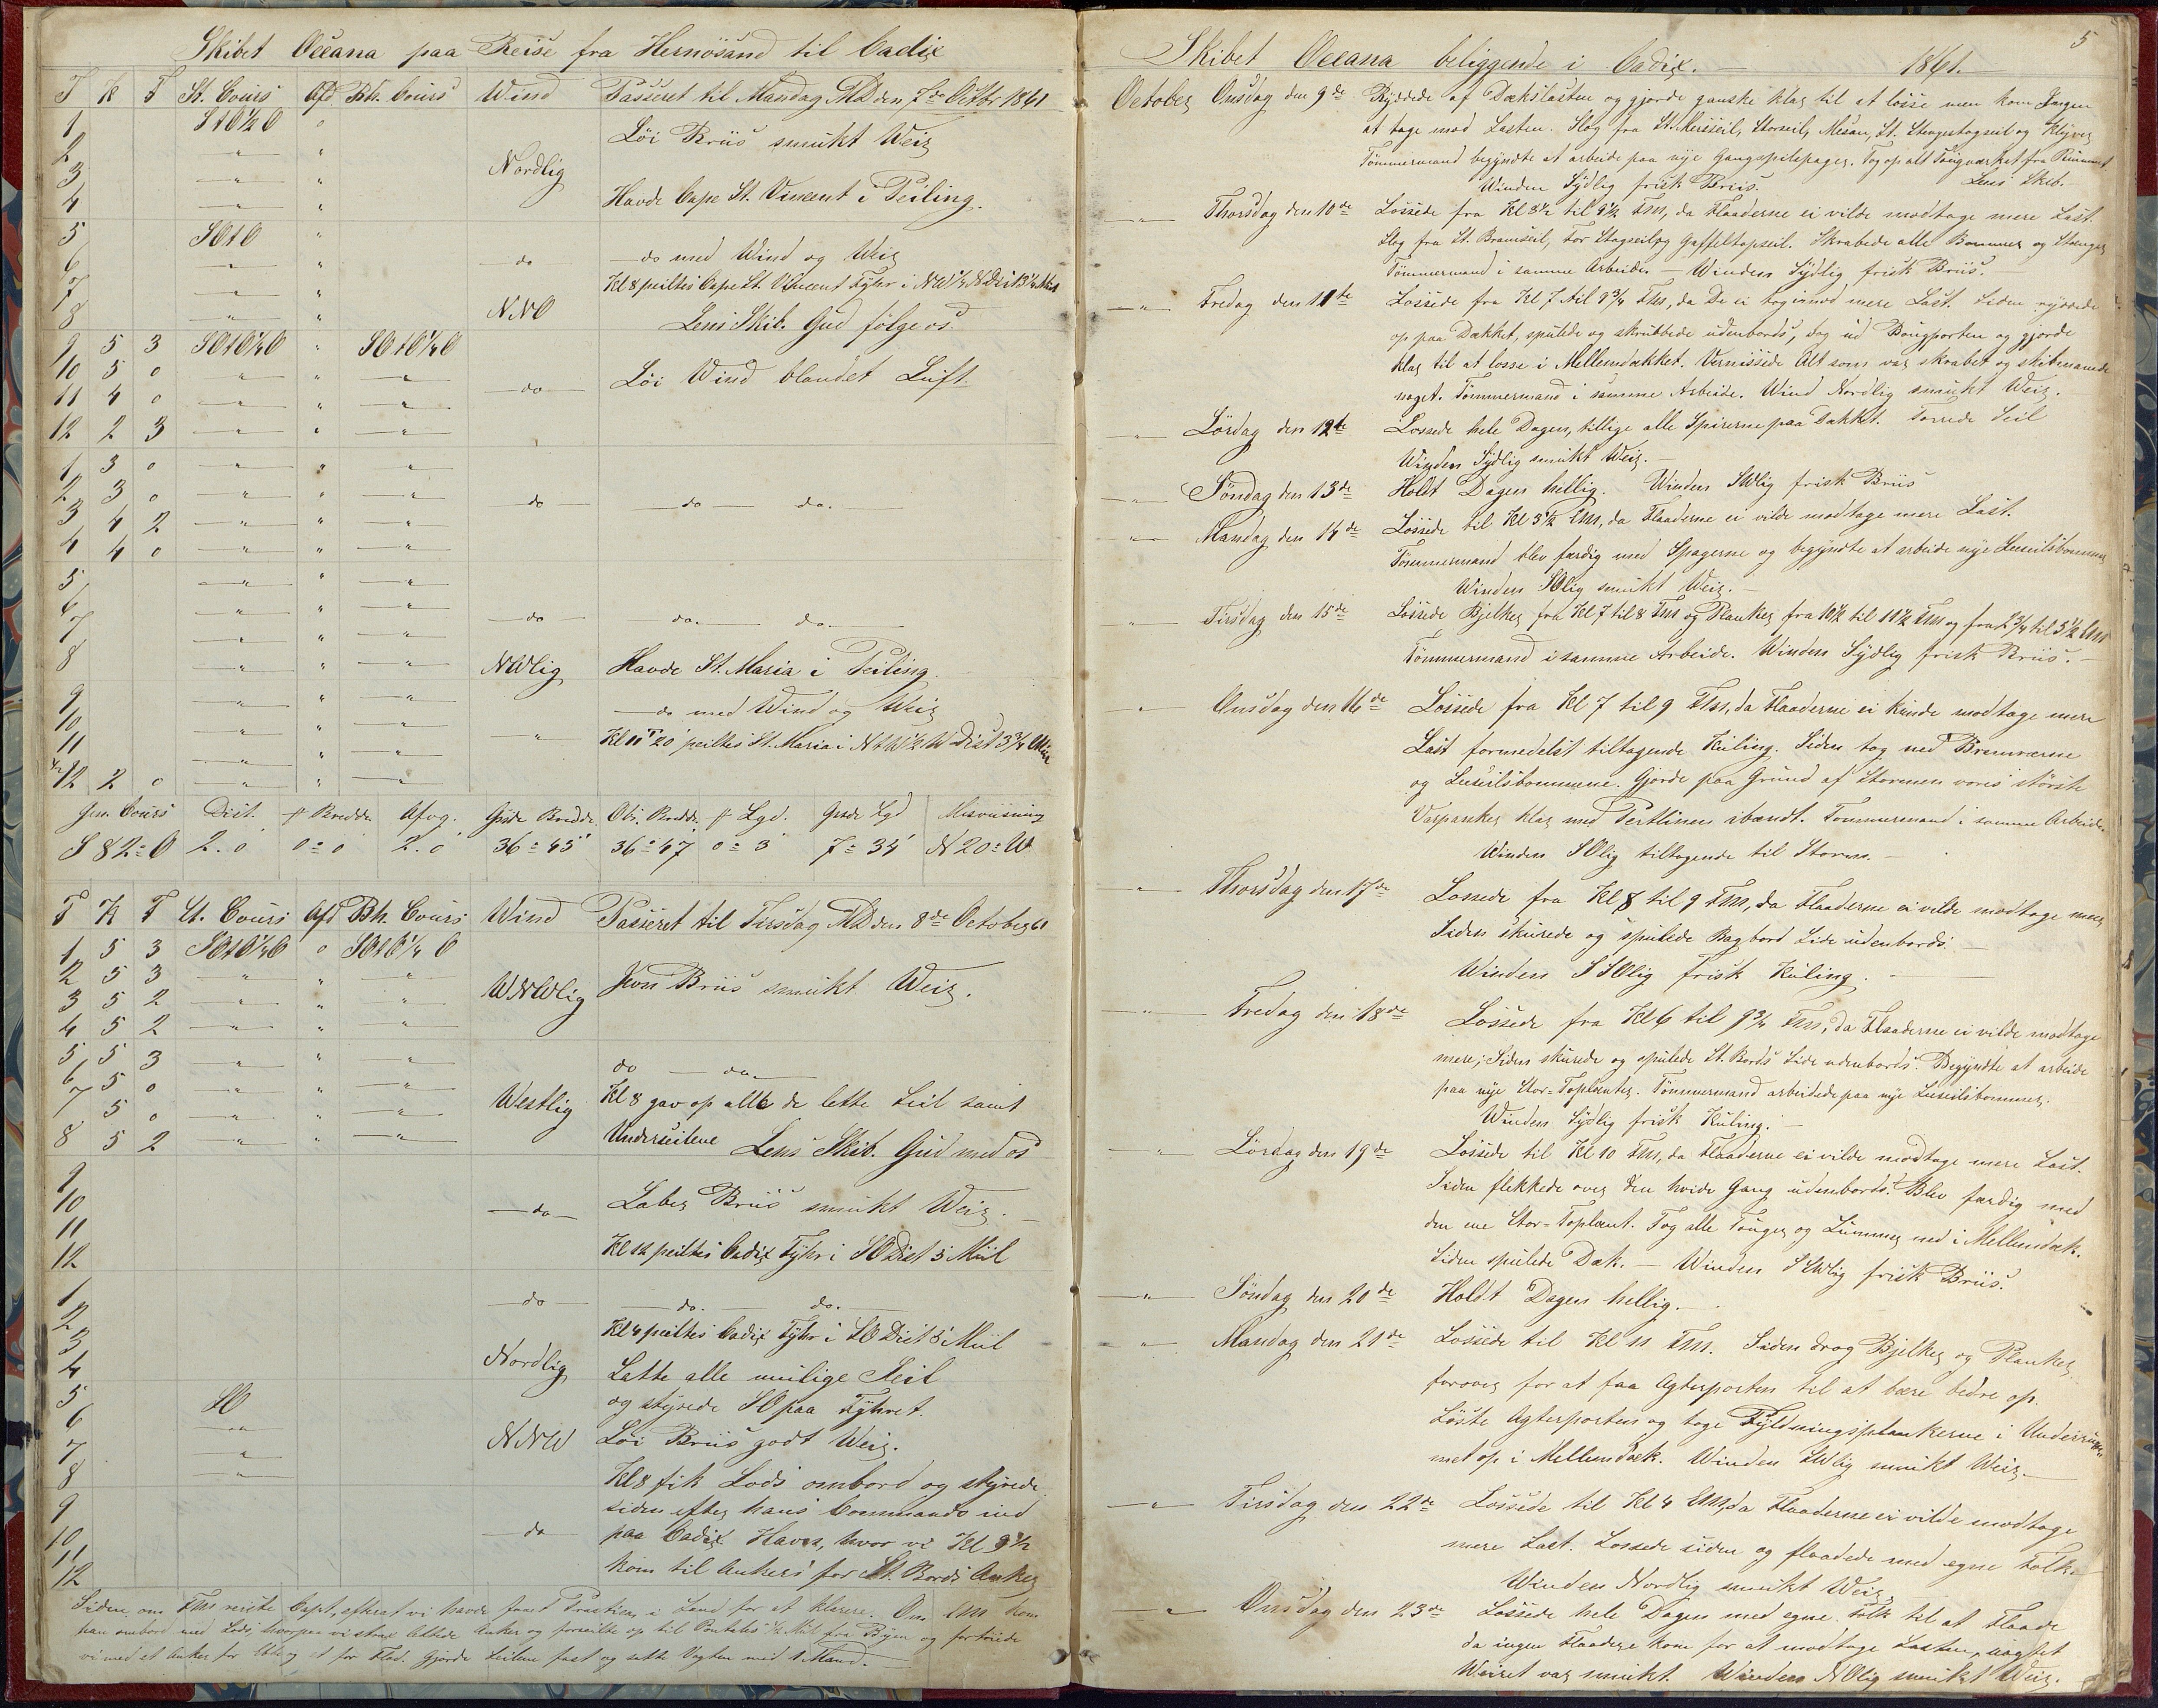 Skibet Oceana paa Reise fra Hernösand til Cadix
T K F St. Cours Afd Bh. Cours Wind Passeret til Mandag MD den 7de Octbr 1861
1 StO½O "
2 " " Löi Briis smukt Veir
3 " " Nordlig
4 " " Havde Cape St. Vincent i Peiling.
5 SOtO "
6 " " do do med Wind og Veir
7 " " Kl 8 peiltes Cape St. Vincent Fyhr i
8 " " NNO Lens Skib. Gud fölge os.
9 5 3 SOtO¼O " SOtO¼O
10 5 0 " " " do Löi Wind blandet Luft.
11 4 0 " " "
12 2 3 " " "
1 3 0 " " "
2 3 0 " " " do do do.
3 4 2 " " "
4 4 0 " " "
5 " " "
6 " " " do do do
7 " " "
8 " " " NWlig Havde St. Maria i Peiling
9 " " " do med Wind og Veir
10 " " "
11 " " " " Kl 11 T 20' peiltes St. Maria i NtW½W Dist 3¾ Miil
12 2 0 " " "
Gen. Cours Dist. f Bredde Afvg. Gisde Bredde Obs. Bredde f Lgd. Gisde Lgd Misviisning
S 82° O 2.0 0° 0 2.0 36° 45' 36° 47 0° 3' 7° 34' N 20° W
T K F St. Cours Afd Bh. Cours Wind Passeret til Tirsdag MD den 8de October 61
1 5 3 SOtO¼O 0 SOtO¼O
2 5 3 " " " Jevn Briis smukt Veir.
3 5 2 " " " WNWlig
4 5 2 " " "
5 5 3 " " " do do
6 5 0 " " "
7 5 0 " " " Westlig Kl 8 gav op alle de lette Seil samt
8 5 2 " " " Underseilene Lens Skib. Gud med os
9
10 do Laber Briis smukt Veir.
11
12 Kl 12 peiltes Cadix Fyhr i SO Dist 5 Miil
1 do do. do.
2
3 Kl 4 peiltes Cadix Fyhr i SO Dist 5 Miil
4 Nordlig Satte alle mulige Seil
5 SO og styrede SO paa Fyhret.
6 " NNW Löi Briis godt Veir.
7 "
8 " Kl 8 fik Lods ombord og styrede
9 siden efter hans Commando ind
10 do paa Cadix Havn, hvor vi Kl 9½
11 kom til Ankers for St. Bords Anker
12
Siden om FM reiste Capt, efterat vi havde faaet Practica, i Land for at klarere. Om EM kom
han ombord med Lods, hvorpaa vi strax lettede Anker og forseilte op til Pontales ½ Miil fra Byen og fortöiede
vi med et Anker for Ebb og et for Flod. Gjorde Seilene fast og satte Vagten med 1 Mand.
5
Skibet Oceana beliggende i Cadix. 1861.
October Onsdag den 9de Ryddede af Dækslasten og gjorde ganske klar til at losse men kom Ingen
at tage mod Lasten. Slog fra St. Merseil, Storseil, Mesan, St. Stengestagseil og Klyver
Tömmermand begyndte at arbeide paa nye Gangspilspager. Tog op alt Tougværket fra Rummet
Winden Sydlig frisk Briis. Lens Skib.
" Thorsdag den 10de Lossede fra Kl 8½ til 9½ FM, da Flaaderne ei vilde modtage mere Last.
Slog fra St. Bramseil, For Stagseil og Gaffeltopseil. Skrabede alle Bommer og Stænger
Tömmermand i samme Arbeide. Winden Sydlig frisk Briis.
" Fredag den 11te Lossede fra Kl 7 til 9¾ FM, da De ei tog imod mere Last. Siden ryddede
op paa Dækket, spulede og skrubbede udenbords, tog ud Bougporten og gjorde
klar til at losse i Mellemdækket. Vernissede Alt som var skrabet og skibmanede
noget. Tömmermand i samme Arbeide. Wind Nordlig smukt Veir.
" Lördag den 12te Lossede hele Dagen, tillige alle Spirerne paa Dækket. Torrede Seil
Winden Sydlig smukt Veir.
" Söndag den 13de Holdt Dagen hellig. Winden SWlig frisk Briis
" Mandag den 14de Lossede til Kl 3½ EM, da Flaaderne ei vilde modtage mere Last.
Tömmermand blev færdig med Spagerne og begyndte at arbeide nye Læseilsbommer
Winden SOlig smukt Veir.
" Tirsdag den 15de Lossede Bjelker fra Kl 7 til 8 FM og Planker fra 10½ til 11½ FM og fra 2¾ til 5½ EM
Tömmermand i samme Arbeide. Winden Sydlig frisk Briis.
" Onsdag den 16de Lossede fra Kl 7 til 9 FM, da Flaaderne ei kunde modtage mere
Last formedelst tiltagende Kuling. Siden tog ned Bramræerne
og Læseilsbommene. Gjorde paa Grund af Stormen vores störste
Varpanker klar med Pertlinen ibændt. Tömmermand i samme Arbeide.
Winden SOlig tiltagende til Storm.
" Thorsdag den 17de Lossede fra Kl 8 til 9 FM, da Flaaderne ei vilde modtage mere,
Siden skurede og spulede Bagbord Side udenbords.
Winden SSOlig frisk Kuling.
" Fredag den 18de Lossede fra Kl 6 til 9¾ FM, da Flaaderne ei vilde modtage
mere; Siden skurede og spulede St. Bords Side udenbords. Begyndte at arbeide
paa nye Stor-Toplenter. Tömmermand arbeidede paa nye Læseilsbommer.
Winden Sydlig frisk Kuling.
" Lördag den 19de Lossede til Kl 10 FM, da Flaaderne ei vilde modtage mere Last.
Siden flekkede over den hvide Gang udenbords. Blev færdig med
den ene Stor-Toplent. Tog alle Touger og Lummer ned i Mellemdæk.
Siden spulede Dæk. Winden SSWlig frisk Briis.
" Söndag den 20de Holdt Dagen hellig.
" Mandag den 21de Lossede til Kl 11 FM. Siden drog Bjelker og Planker
forover for at faa Agterporten til at bære bedre op.
Löste Agterporten og toge Fyldningsplankerne i Underrum-
met op i Mellemdæk. Winden SWlig smukt Veir.
" Tirsdag den 22de Lossede til Kl 4 EM, da Flaaderne ei vilde modtage
mere Last. Lossede siden og flaadede med egne Folk.
Winden Nordlig smukt Veir
" Onsdag den 23de Lossede hele Dagen med egne Folk til at Flaade
da ingen Flaadere kom for at modtage Lasten, uagtet
Veiret var smukt. Winden NOlig smukt Veir.